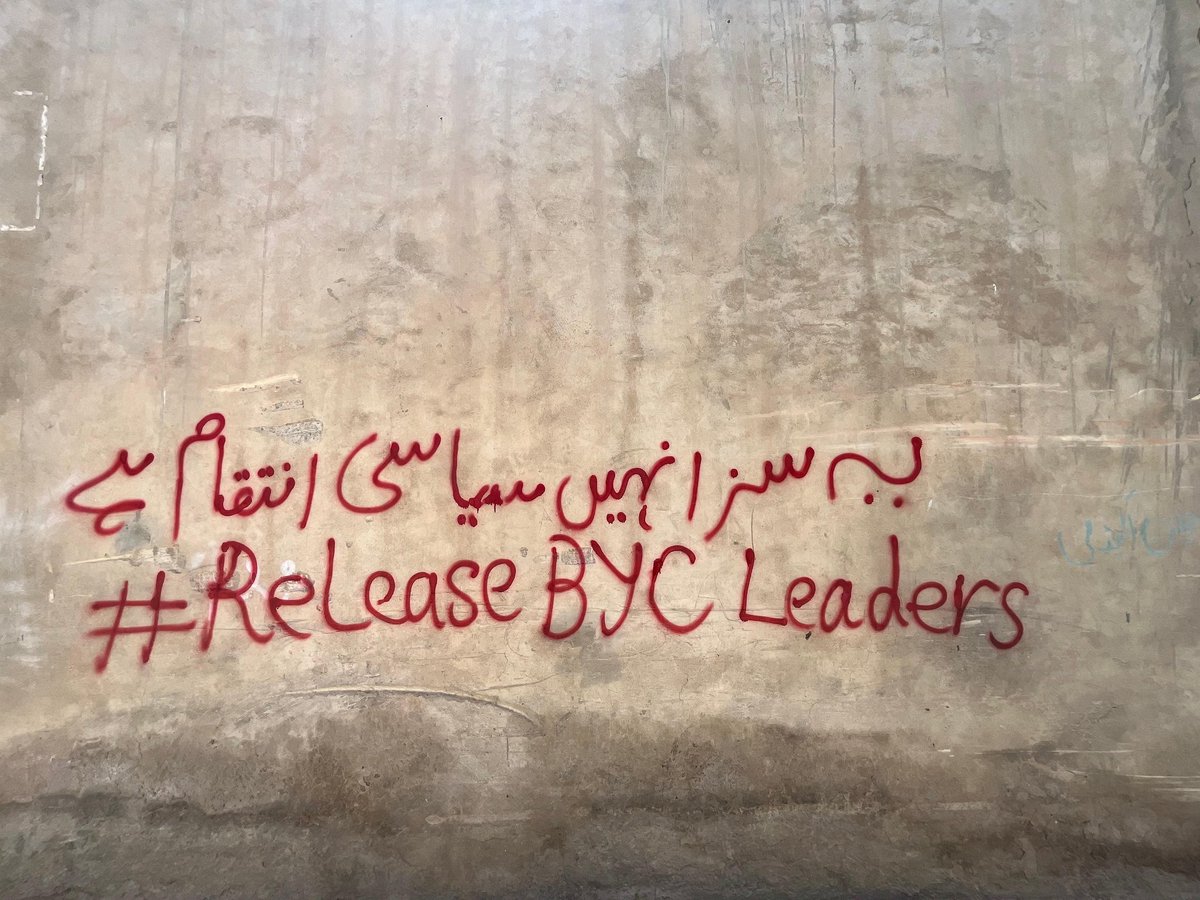 یہ سزا نہیں سیاسی انتقام ہے
#Release BYC Leaders